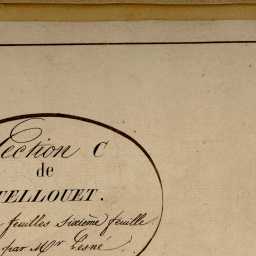 ection C
de
ELLOUET.
feuilles Sixième feuille
par Mr Lesné